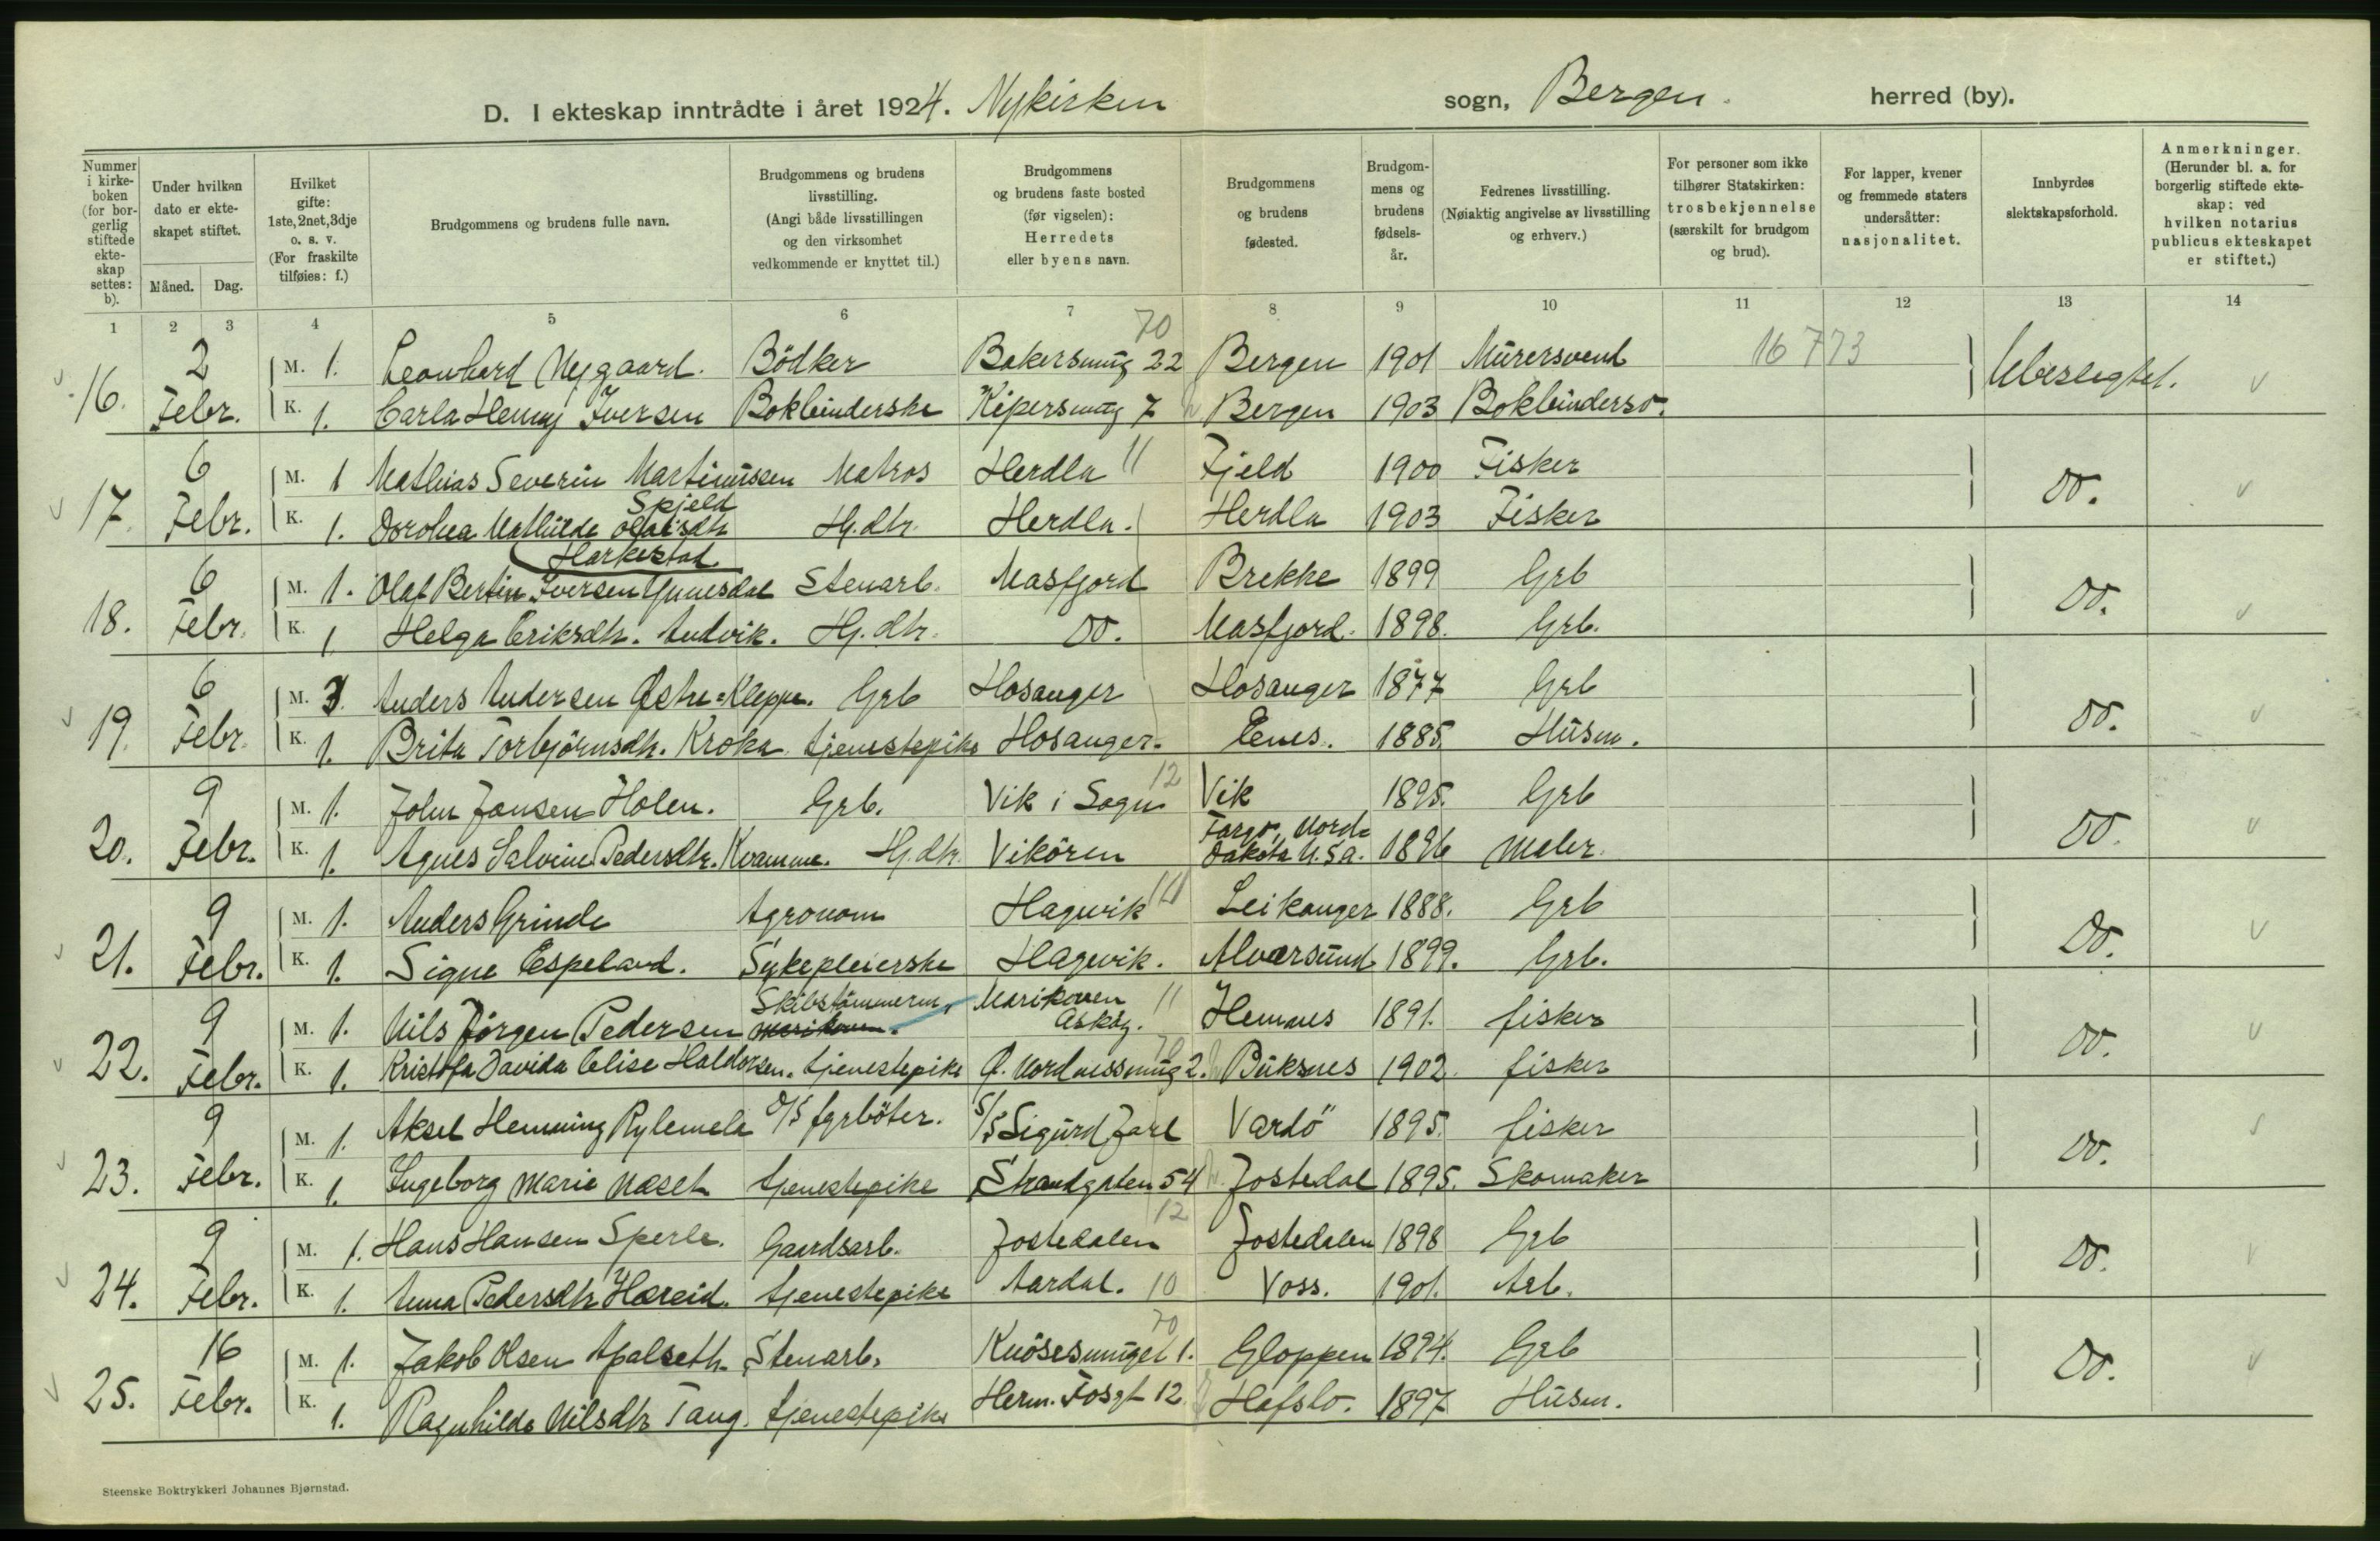 D. I ekteskap inntrådte i året 1924. Nykirken sogn, Bergen. herred (by).
Nummer i kirke- boken (for bor- gerlig stiftede ekte- skap settes: b).
Under hvilken dato er ekte- skapet stiftet.
Måned. Dag.
Hvilket gifte: 1ste, 2net, 3dje o. s. v. (For fraskilte tilføies: f.)
Brudgommens og brudens fulle navn.
Brudgommens og brudens livsstilling. (Angi både livsstillingen og den virksomhet vedkommende er knyttet til.)
Brudgommens og brudens faste bosted (før vigselen): Herredets eller byens navn.
Brudgommens og brudens fødested.
Brudgom- mens og brudens fødsels- år.
Fedrenes livsstilling. (Nøiaktig angivelse av livsstilling og erhverv.)
For personer som ikke tilhører Statskirken: trosbekjennelse (særskilt for brudgom og brud).
For lapper, kvener og fremmede staters undersåtter: nasjonalitet.
Innbyrdes slektskapsforhold.
Anmerkninger. (Herunder bl. a. for borgerlig stiftede ekte- skap: ved hvilken notarius publicus ekteskapet er stiftet.)
1 2 3 4 5 6 7 8 9 10 11 12 13 14
70
16. 2 M. 1. Leonhard Nygaard. Bödker Bakersmug 22 Bergen 1901 Murersvend 16 773 Ubeslegtet.
Febr. K. 1. Carla Henny Iversen Bokbinderske Kipersmug 7 Bergen 1903 Bokbindersv.
17. 6 M. 1 Mathias Severin Martinussen Matros Herdla 11 Fjeld 1900 Fisker Do.
Skjeld
Febr. K. 1. Dorothea Mathilde Olaisdtr H.dtr. Herdla. Herdla 1903 Fisker
Harkestad
18. 6 M. 1. Olaf Bertin Iversen Stenarb. Masfjord Brekke 1899 Grb Do.
Febr. K. 1 Helga Eriksdtr. Andvik. Hj. dtr. Do. Masfjord. 1898. Grb.
19. 6 M. 3. Anders Andersen Östre=Kleppe. Grb Hosanger Hosanger 1877 Grb Do.
Febr. K. 1. Brita Torbjörnsdtr. Kroka tjenestepike Hosanger. Eenes. 1885. Husm.
12
20. 9 M. 1. John Jonsen Holen. Grb. Vik i Sogn Vik 1895. Grb Do.
Fargo, Nord-
Febr. K. 1. Agnes Salvine Pedersdtr. Kvamme. Hj.dtr. Vikören Dakota U.S.A. 1896 Maler.
21. 9 M. 1. Anders Grinde Agronom Hagevik Leikanger 1888. Grb Do.
Febr. K. 1. Signe Espeland. Sykepleierske Hagevik. Alversund 1899. Grb.
Skibstömmerm. Marikoven 11
22. 9 M. 1. Nils Jörgen Pedersen Marikoven. Asköy. Hemnes 1891. fisker Do.
70
Febr. K. 1. Kristofa Davida Elise Haldorsen. tjenestepike Ö. Nordnessmug 2. Buksnes 1902. fisker
23. 9 M. 1. Aksel Henning Rylemele D/S fyrböter. S/S Sigurd Jarl Vardö 1895. fisker Do.
Febr. K. 1. Ingeborg Marie Næset tjenestepike Strandgaten 54 Jostedal 1895. Skomaker
12
24. 9 M. 1. Hans Hansen Sperle. Gaardsarb. Jostedalen Jostedalen 1898 Grb Do.
Febr. K. 1. Anna Pedersdtr Hæreid. tjenestepike Aardal. 10 Voss. 1901. Arb.
70
25. 16 M. 1. Jakob Olsen Apalseth. Stenarb. Knösesmuget 1. Gloppen 1894. Grb Do.
Febr. K. 1. Ragnhilda Nilsdtr Tang. tjenestepike Herm. Fosgt 12 Hafslo. 1897 Husm.
Steenske Boktrykkeri Johannes Bjørnstad.